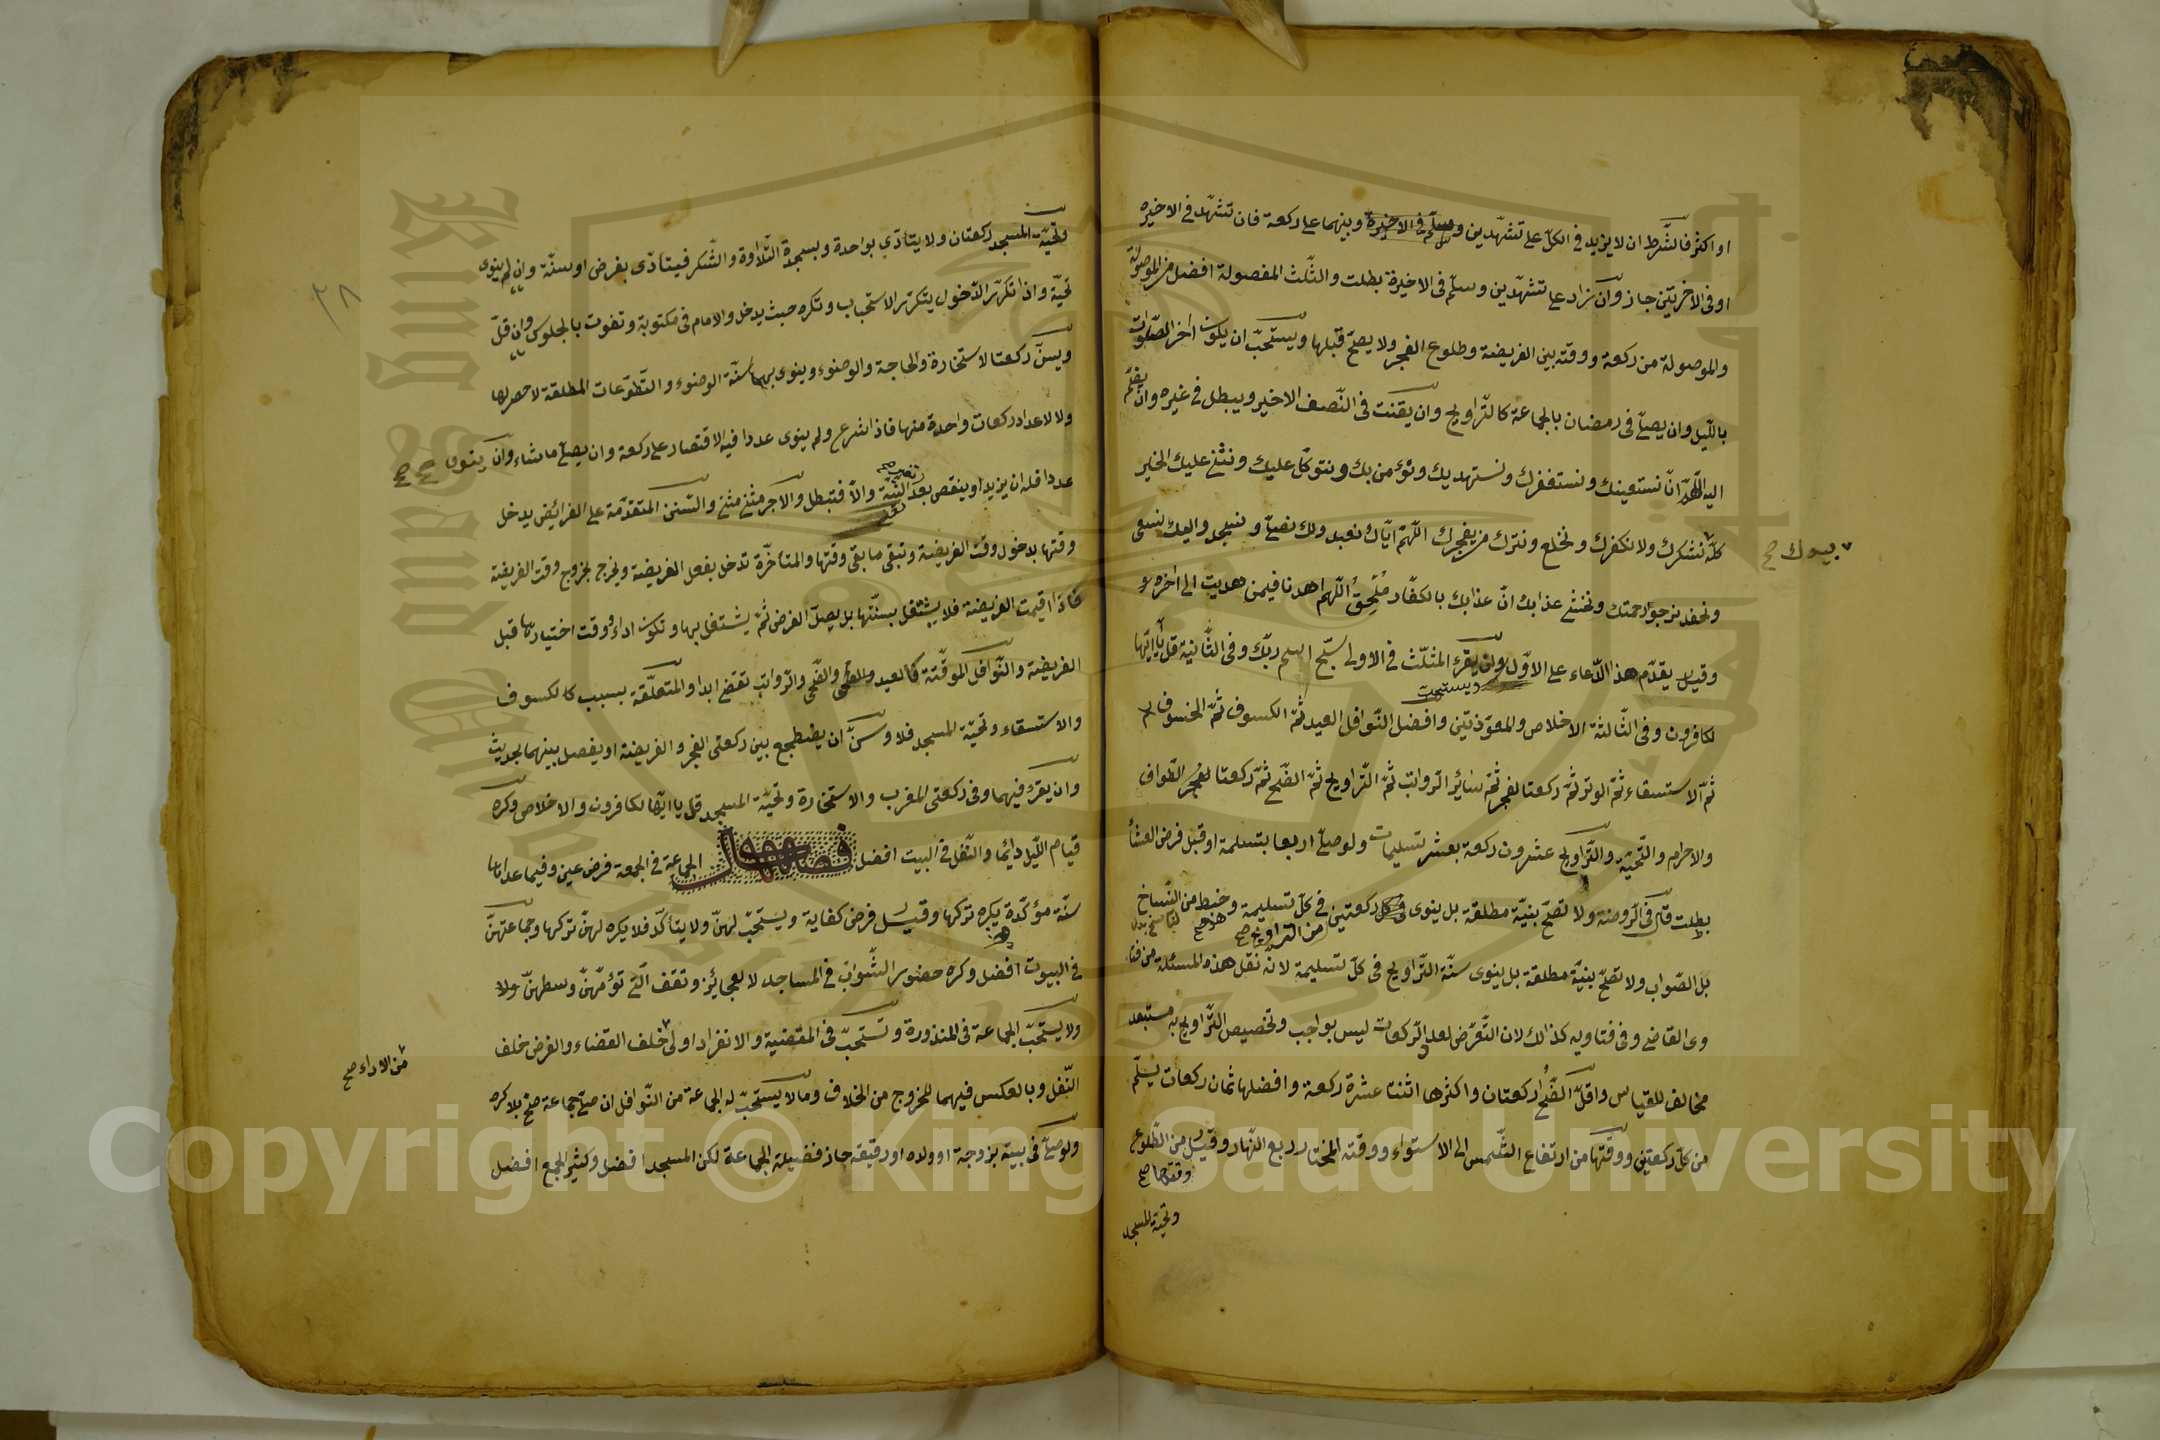 او اكثر فالشّرط ان لا يزيد في الكلّ على تشهّدين وسلّم في الاخيرة وبينهما على ركعة فان تشهّد في الاخيره
او في الاخريتين جاز وان زاد على تشهّدين وسلّم في الاخيرة بطلت والثّلث المفصولة افضل من الموصولة
والموصولة من ركعة ووقته بين الفريضة وطلوع الفجر ولا يصحّ قبلها ويستحبّ ان يكون اخر الصّلوات
بالليل وان يصلّى في رمضان بالجماعة كالتّراويح وان يقنت في النّصف الاخير ويبطل في غيره وان يضمّ
اليه اللهمّ انّا نستعينك ونستغفرك ونستهديك ونؤمن بك ونتوكّل عليك ونثني عليك الخير
كلّه نشكرك ولا نكفرك ونخلع ونترك من يفجرك اللّهمّ ايّاك نعبد ولك نصلّي ونسجد واليك نسعى
ونحفد نرجو رحمتك ونخشى عذابك انّ عذابك بالكفّار مُلْحِقٌ اللّهم اهدنا فيمن هديت الى اخره
وقيل يقدّم هذا الدّعاء على الاوّل وان يقرء المثلّث في الاولى سبّح اسم ربّك وفي الثّانية قل يا ايّها
ويستحبّ
لكافرون وفي الثّالثة الاخلاص والمعوّذتين وافضل النّوافل العيد ثمّ الكسوف ثمّ الخسوف
ثمّ الاستسقاء ثمّ الوتر ثمّ ركعتا لفجر ثمّ سائر الرّواتب ثمّ التّراويح ثمّ الضّحى ثمّ ركعتا الطّواف
والاحرام والتّحيّة والتّراويح عشرون ركعة بعشر تسليمات ولو صلّى اربعا بتسليمة او قبل فرض العشأ
بطلت قال في الرّوضة ولا تصحّ بنيّة مطلقة بل ينوى ركعتين في كلّ تسليمة من النّسّاخ
من التراويح صح
بل الصّواب ولا تصحّ بنيّة مطلقة بل ينوى سنّة التّراويح في كلّ تسليمة لانّه نقل هذه المسئلة من فتا
وى القاضى وفي فتاويه كذالك لان التّعرّض لعدد الرّكعات ليس بواجب وتخصيص التّراويح به مستبعد
مخالف للقياس واقلّ الضّحى ركعتان واكثرها اثنتا عشرة ركعة وافضلها ثمان ركعات يسلّم
من كلّ ركعتين ووقتها من ارتفاع الشّمس الى الاستواء ووقته المختار ربع النّهار وقيل من الطّلوع
وتحيّة المسجد
وتحيّة المسجد ركعتان ولا يتأدّي بواحدة وبسجدة التّلاوة والشّكر فيتادّى بفرض او سنّة وان لم ينوى
٣٨
تحيّة واذا تكرّر الدّخول يتكرّر الاستحباب وتكره حيث يدخل والامام في مكتوبة وتفوت بالجلوس وان قلّ
ويسنّ ركعتا الاستخارة والحاجة والوضوء وينوى بهما سنّة الوضوء والتّطوّعات المطلقة لا حصر لها
ولا لاعداد ركعات واحدة منها فاذا شرع ولم ينوى عددا فيه الاقتصار على ركعة وان يصلّى ماشاء وان ينوى
عددا فله ان يزيد او ينقص بعد النّيّة والّا فتبطل والاجر مثنى مثنى والسّنن المتقدّمة على الفرائض يدخل
وقتها بدخول وقت الفريضة وتبقى ما بقى وقتها والمتأخّرة تدخل بفعل الفريضة ويخرج بخروج وقت الفريضة
فاذا اقيمت الفريضة فلا يشتغل بسنّتها بل يصلّى الفرض ثمّ يشتغل بها وتكون اداء ووقت اختيارها قبل
الفريضة والنّوافل الموقّتة كالعيد والضّحى والرّواتب تقضى ابدا والمتعلّقة بسبب كالكسوف
والاستسقاء وتحيّة المسجد فلا وسنّ ان يضطجع بين ركعتى الفجر والفريضة او يفصل بينهما بحديث
وان يقرء فيهما وفى ركعتى المغرب والاستخارة وتحيّة المسجد قل يا ايّها لكافرون والاخلاص وكره
قيام اللّيل دائما والنّفل في البيت افضل فصل الجماعة في الجمعة فرض عين وفيما عداها
سنّة مؤكّدة يكره تركها وقيل فرض كفاية ويستحبّ لهنّ ولا يتأكّد فلا يكره لهنّ تركها وجماعتهنّ
في البيوت افضل وكره حضور الشّوابّ في المساجد لا لعجائز وتقف الّتى تؤمّهنّ وسطهنّ ولا
ولا يستحبّ الجماعة في المنذورة وتستحبّ في المقضية والانفراد اولى خلف القضاء والفرض خلف
من الاداء صح
النّفل وبالعكس فيهما للخروج من الخلاف وما لا يستحبّ له الجماعة من النّوافل ان صلّى جماعة صحّ بلا كره
ولو صلّى في بيته بزوجة او ولاده او رقيقه حاز فضيلة الجماعة لكن المسجد افضل وكثير الجمع افضل
King Saud University
Copyright © King Saud University